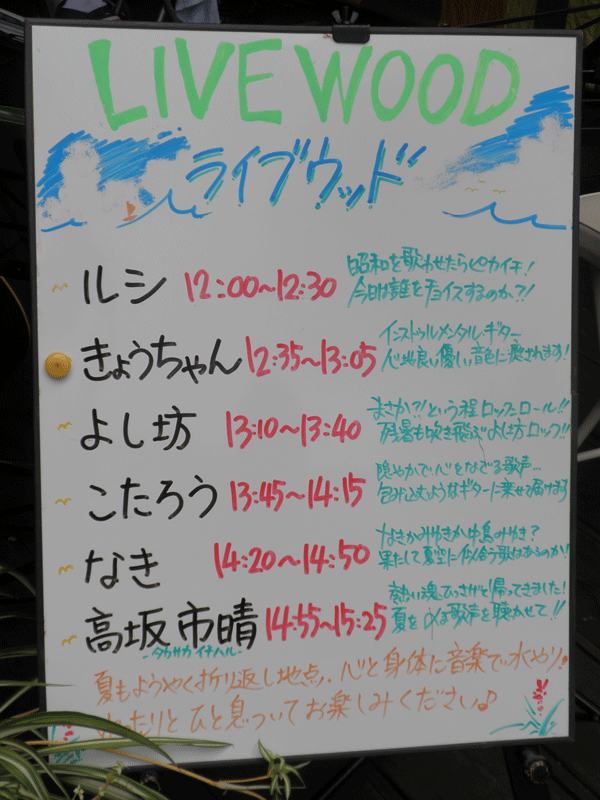 LIVE WOOD
ライブウッド
ルシ 12:00〜12:30
昭和を歌わせたらピカイチ!
今日は誰をチョイスするのか?!
きょうちゃん 12:35〜13:05
インストゥルメンタルギター
心地良い優しい音色に癒されます!
よし坊 13:10〜13:40
まさか?!という程ロックンロール!!
残暑も吹き飛ぶよし坊ロック!!
こたろう 13:45〜14:15
穏やかで心をなでる歌声…
包み込むようなギターに乗せて届けます
なき 14:20〜14:50
なきかみゆきか中島みゆき?
果たして夏空に似合う歌はあるのか!
高坂市晴 14:55〜15:25
-タカサカ イチハル-
熱い魂ひっさげて帰ってきました!
夏を 歌声を聴かせて!!
夏もようやく折り返し地点、心と身体に音楽で水やり。
ゆったりと ひと息ついてお楽しみください♪